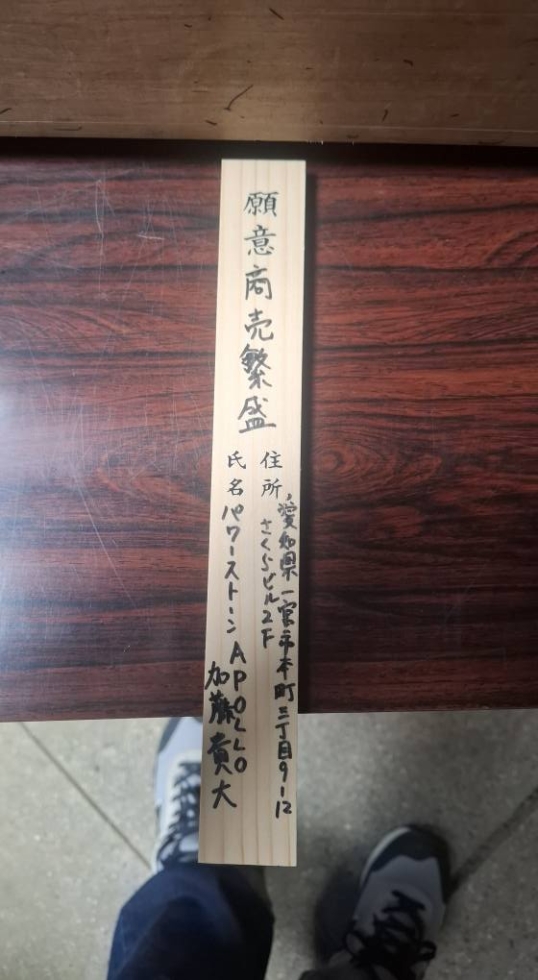 願意商売繁盛
住所 愛知県一宮市本町三丁目9-12
さくらビル2F
氏名 パワーストーンAPOLLO
加藤貴大